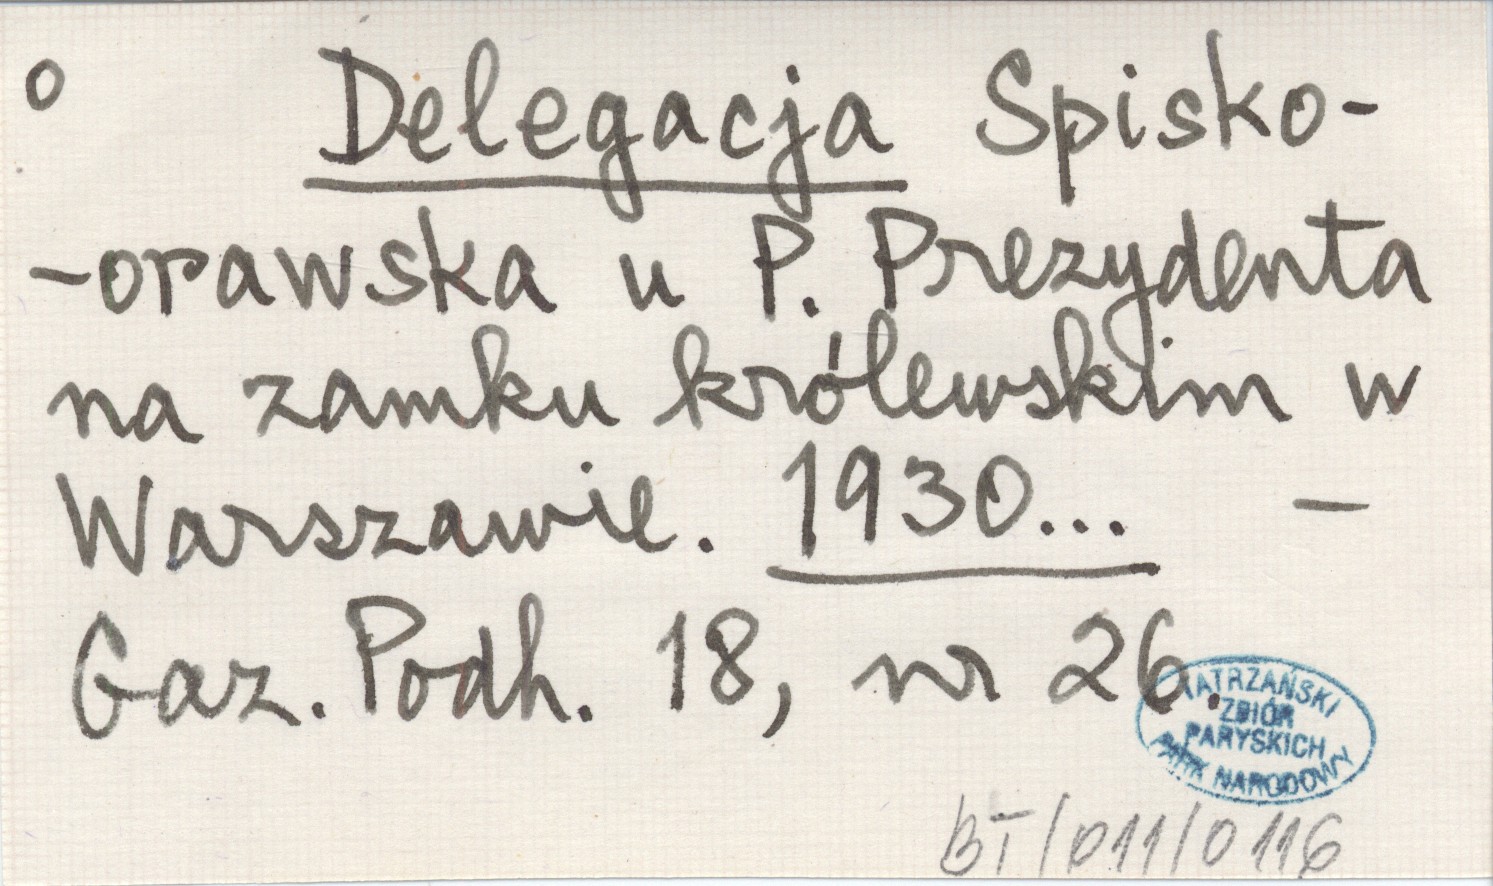 o Delegacja Spisko-
-orawska u P. Prezydenta
na zamku królewskim w
Warszawie. 1930... —
Gaz. Podh. 18, nr 26.
TATRZAŃSKI
ZBIÓR
PARYSKICH
PARK NARODOWY
BT/011/0116